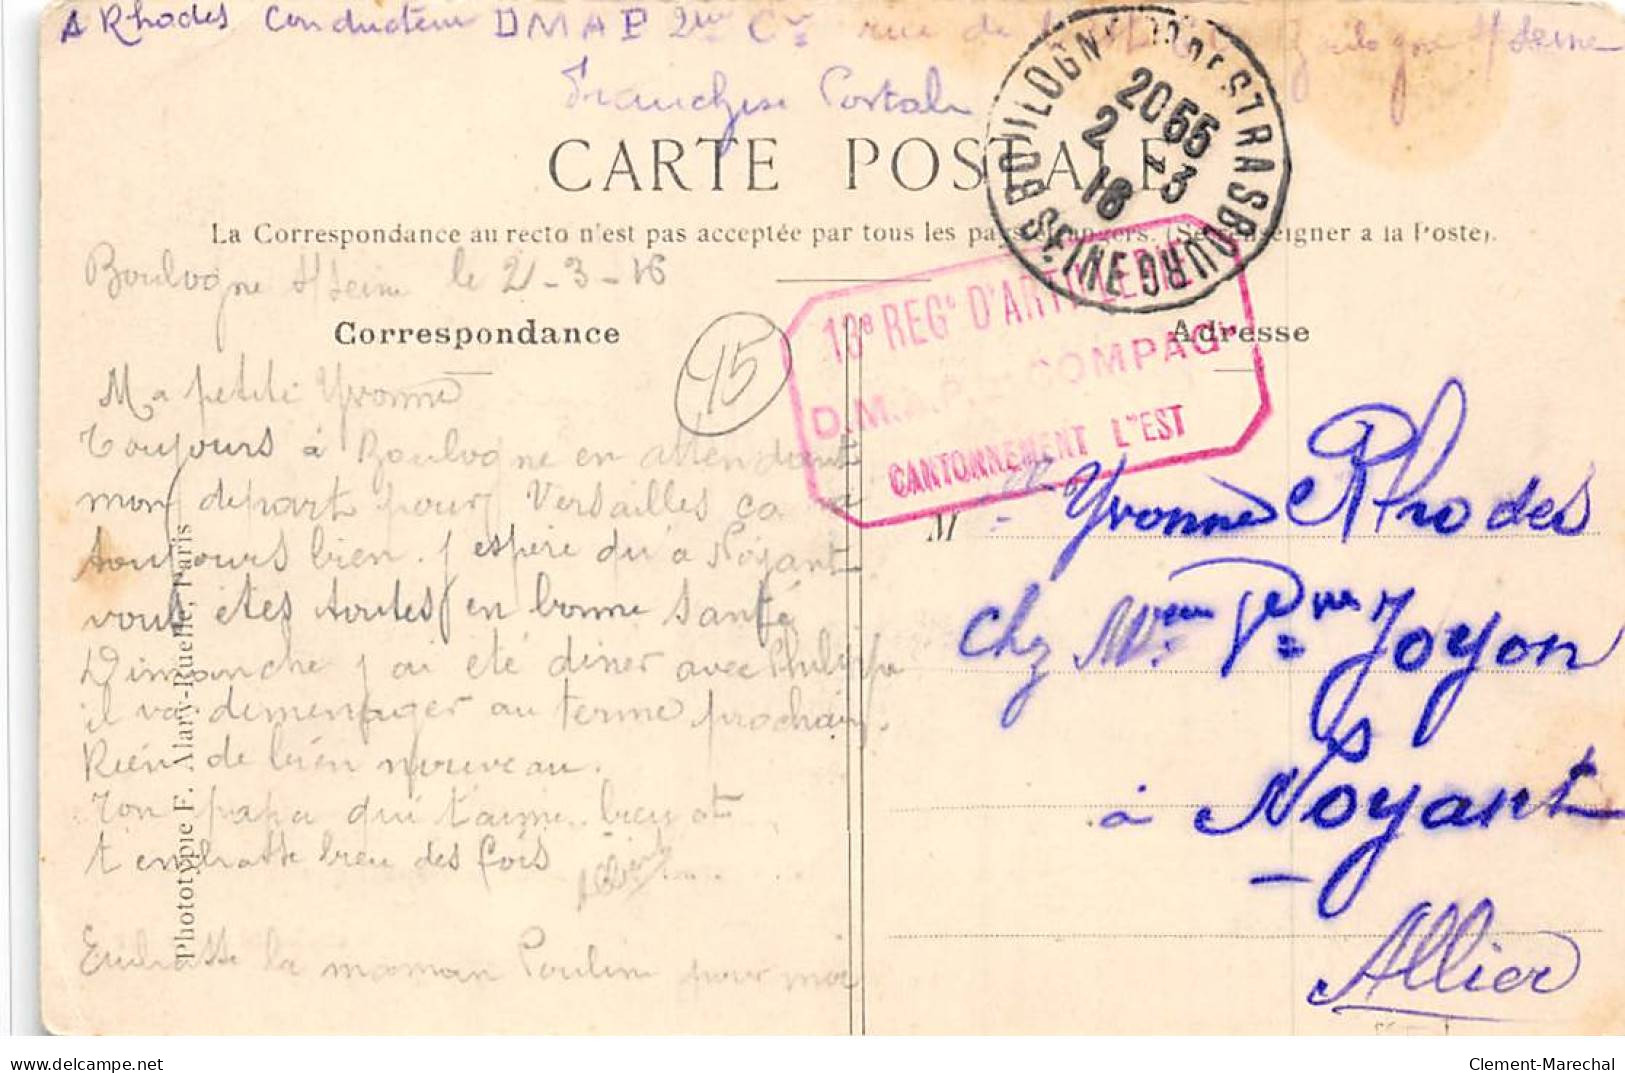 A Rhodes Conducteur DMAP 2me Cie rue de Boulogne s/seine
Franchise Postale
CARTE POSTALE
La Correspondance au recto n'est pas acceptée par tous les pays étrangers. (Se renseigner a la Poste).
BOULOGNE STRASBOURG SEINE
2055
2 -3
16
Boulogne s/seine le 2-3-16
Correspondance
Adresse
15
13e REGt D'ARTILLERIE
D.M.A.P. COMPAGie
CANTONNEMENT L'EST
Ma petite Yvonne
Toujours à Boulogne en attendant
mon départ pour Versailles ca va
toujours bien. j'espère qu'a Noyant
vous êtes toutes en bonne santé
Dimanche j'ai été diner avec Philippe
il va demenager au terme prochain.
Rien de bien nouveau.
Ton papa qui t'aime bien et
t'embrasse bien des fois
Albert
Embrasse la maman Pouline pour moi
M lle Yvonne Rhodes
Chez Mme Vve Joyon
à Noyant
Allier
Phototypie F. Alary-Ruelle, Paris
delcampe.net
Clement-Marechal